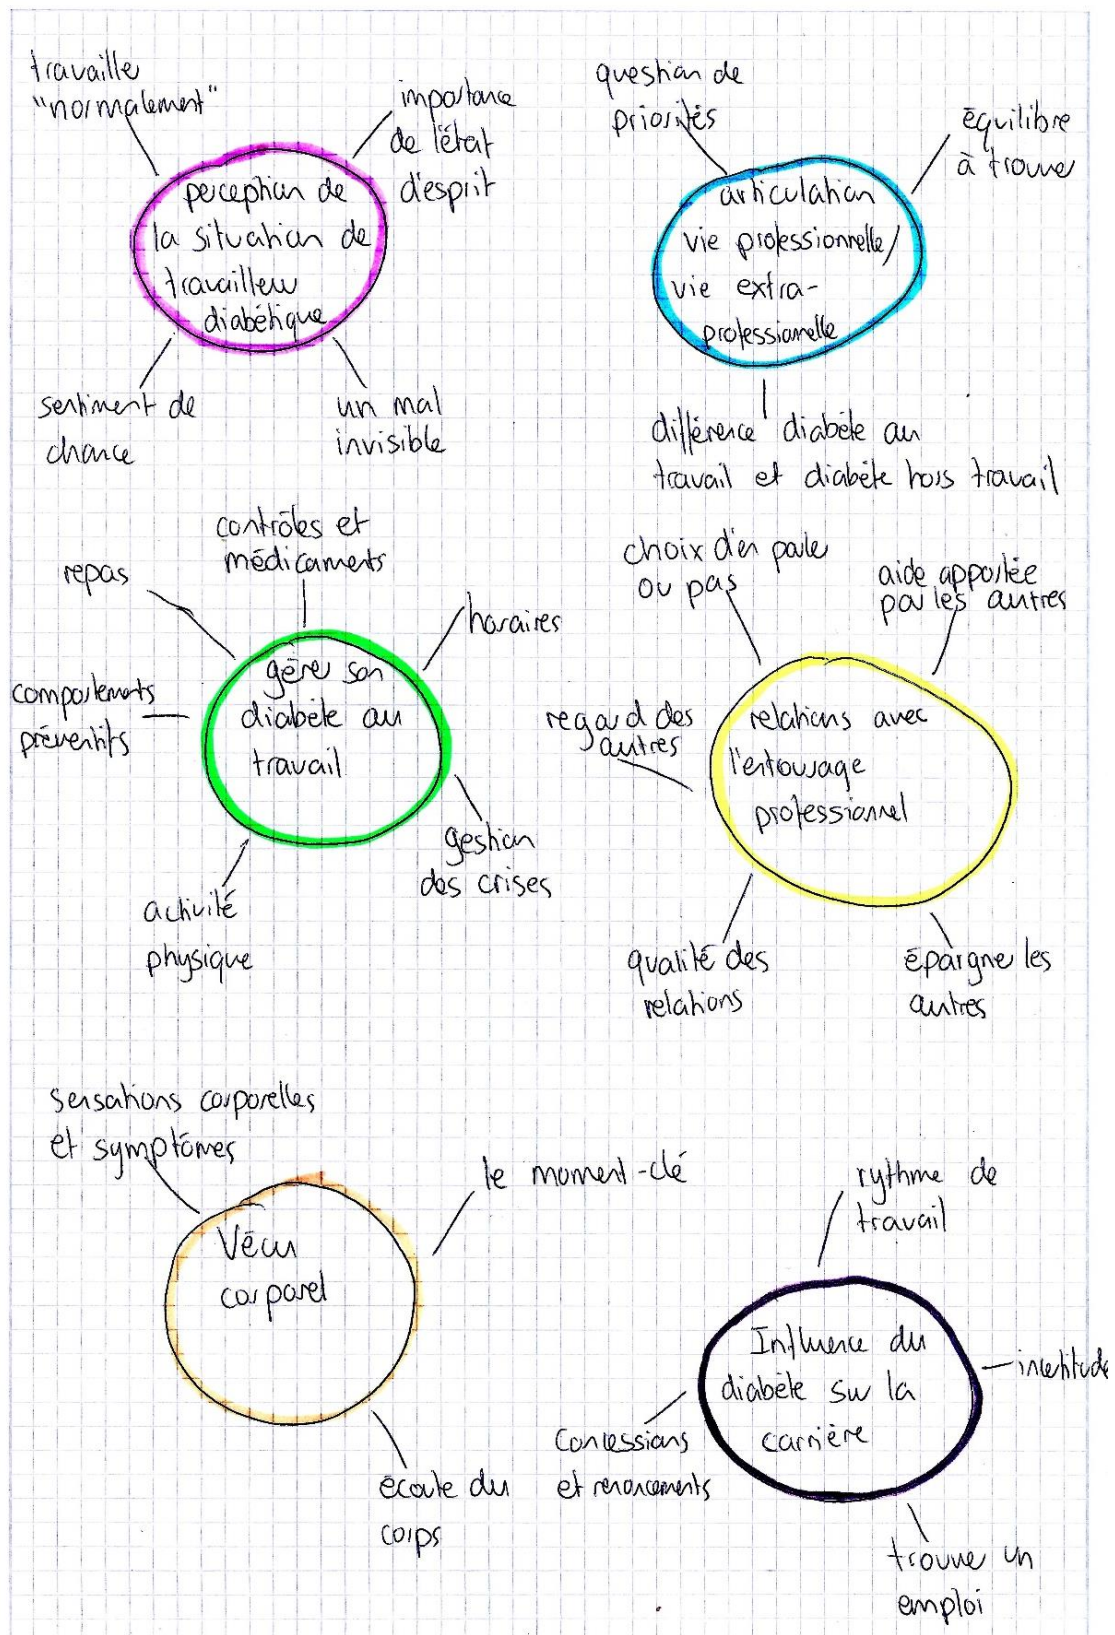 travailler
"normalement"
importance
de l'état
d'esprit
perception de
la situation de
travailleur
diabétique
sentiment de
chance
un mal
invisible
question de
priorités
équilibre
à trouver
articulation
vie professionnelle/
vie extra-
professionnelle
différence diabète au
travail et diabète hors travail
contrôles et
médicaments
repas
horaires
gérer son
diabète au
travail
comportements
préventifs
gestion
des crises
activité
physique
choix d'en parler
ou pas
aide apportée
par les autres
regard des
autres
relations avec
l'entourage
professionnel
qualité des
relations
épargner les
autres
sensations corporelles
et symptômes
le moment-clé
Vécu
corporel
écoute du
corps
rythme de
travail
Influence du
diabète sur la
carrière
incertitude
concessions
et renoncements
trouver un
emploi